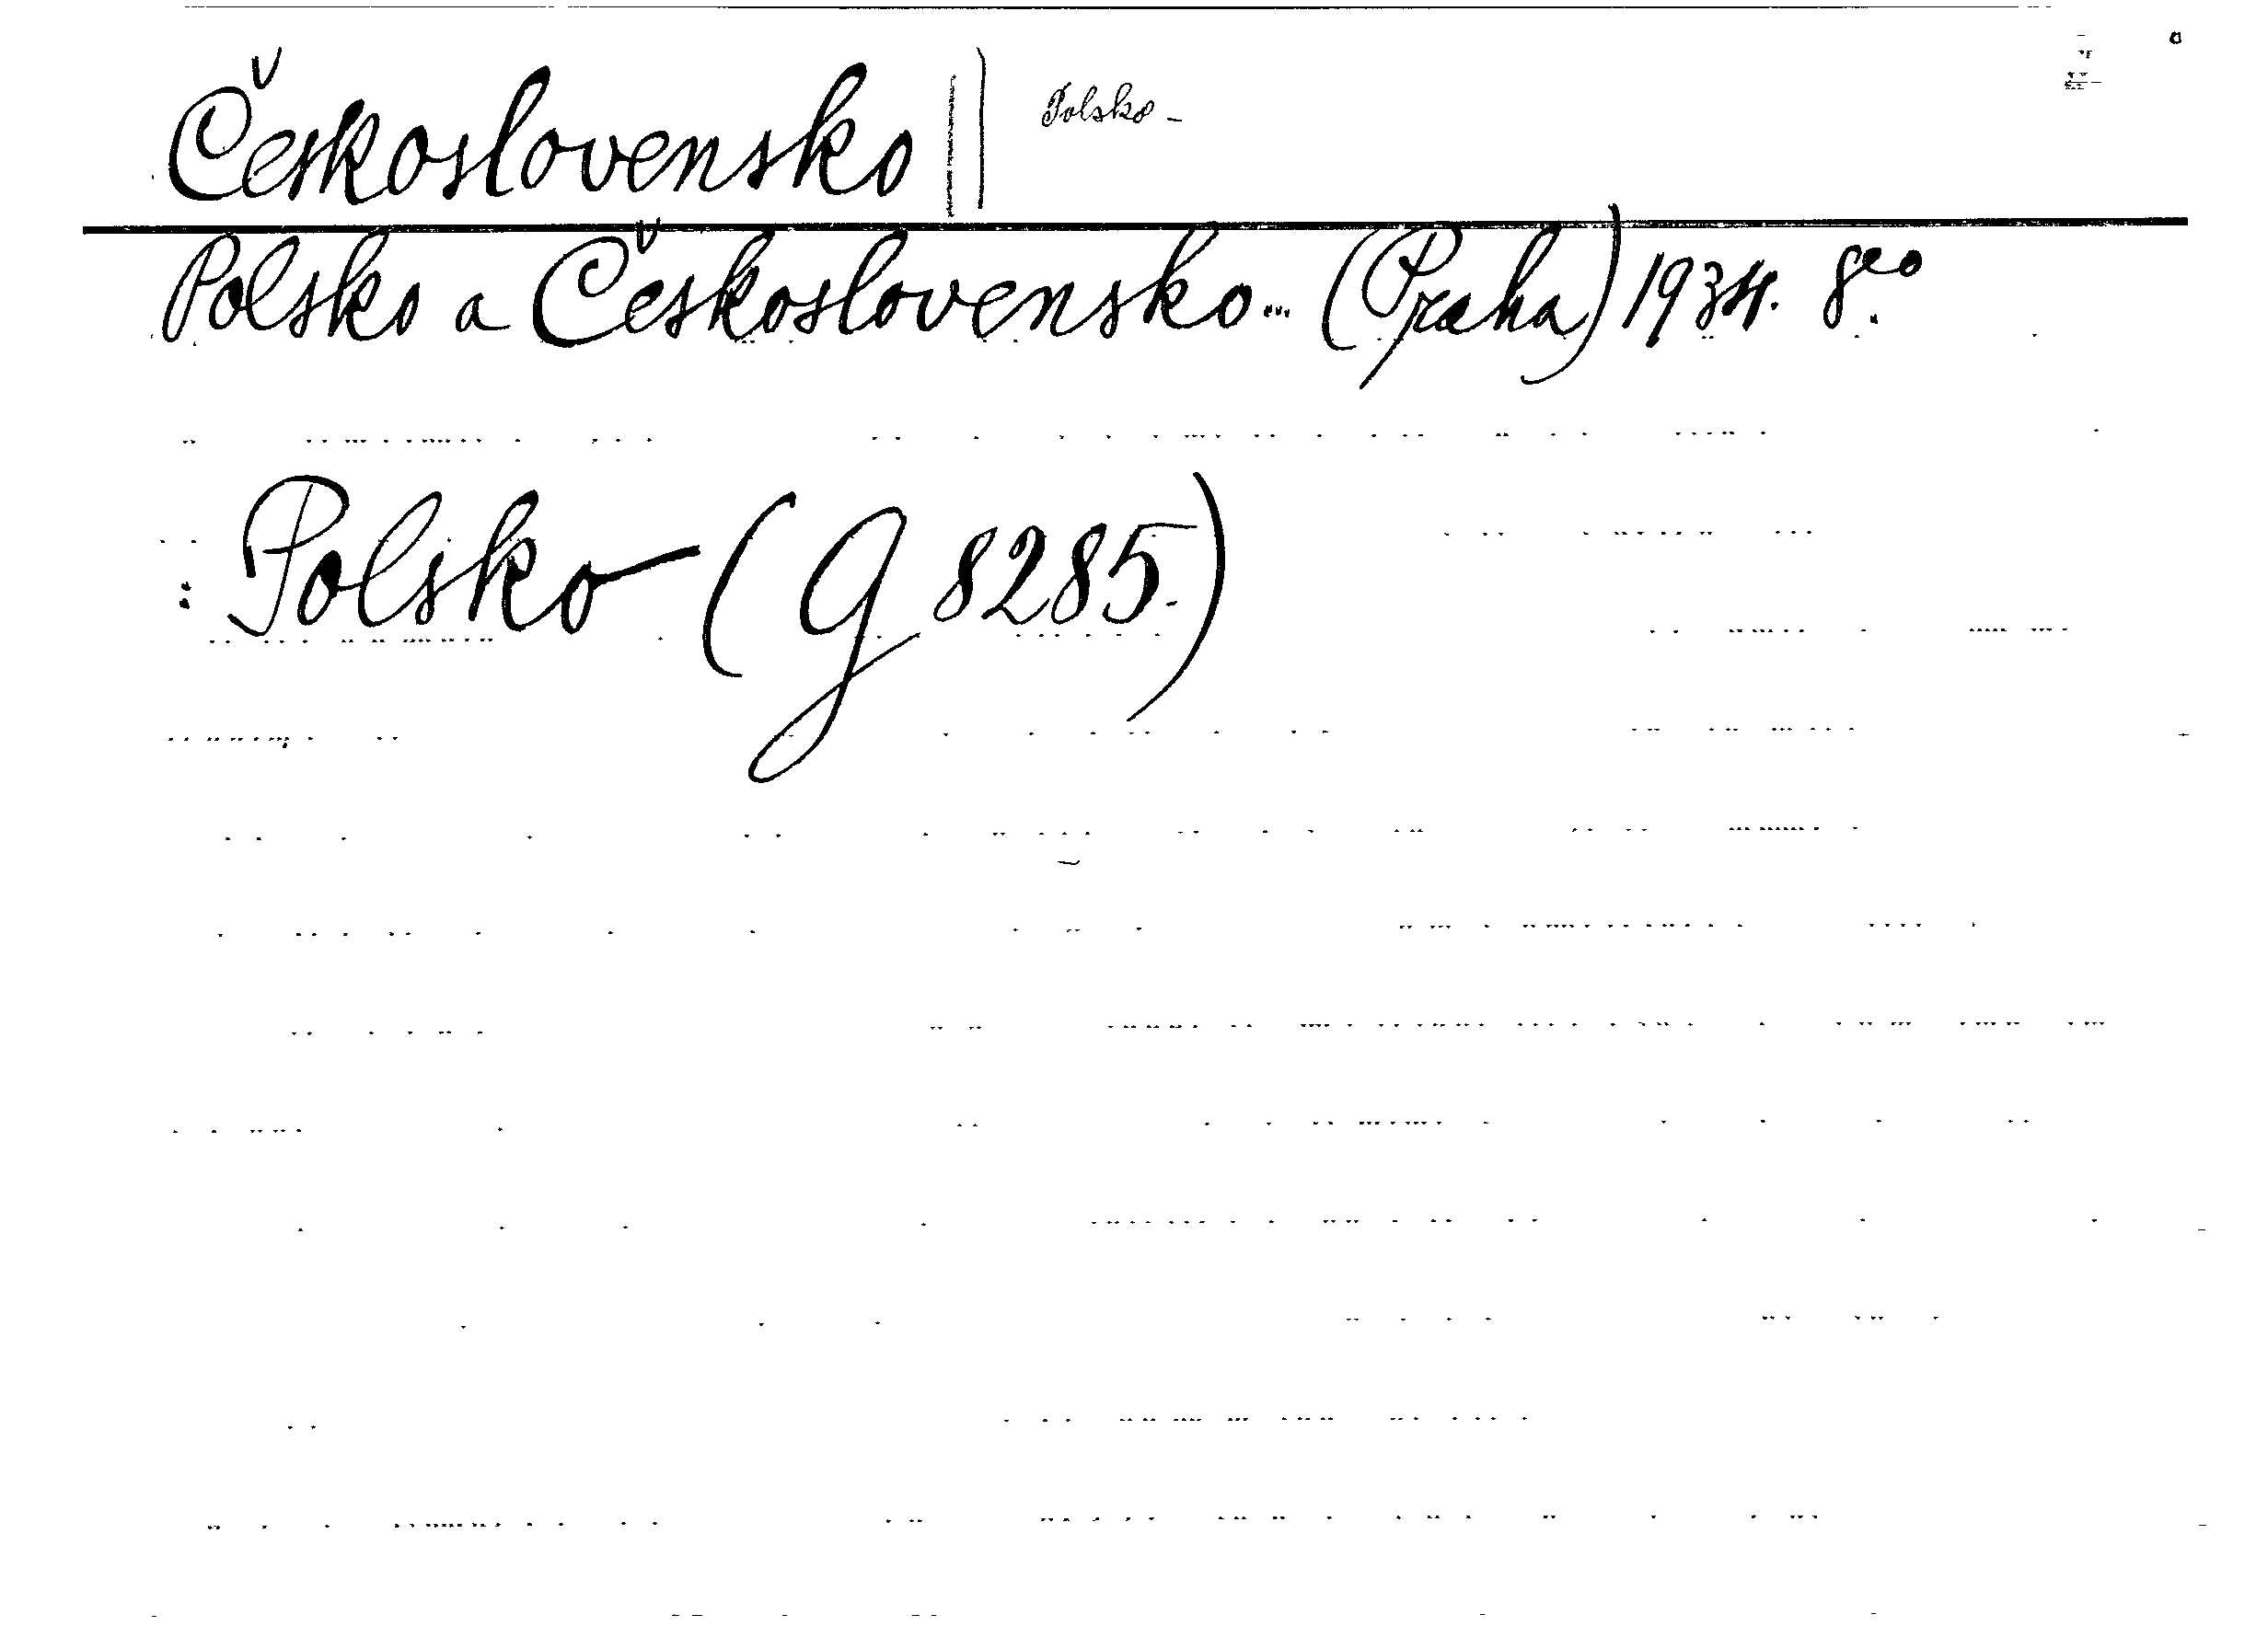 Československo || Polsko -
Polsko a Československo... (Praha) 1934. 8°.
: Polsko - (G 8285.)